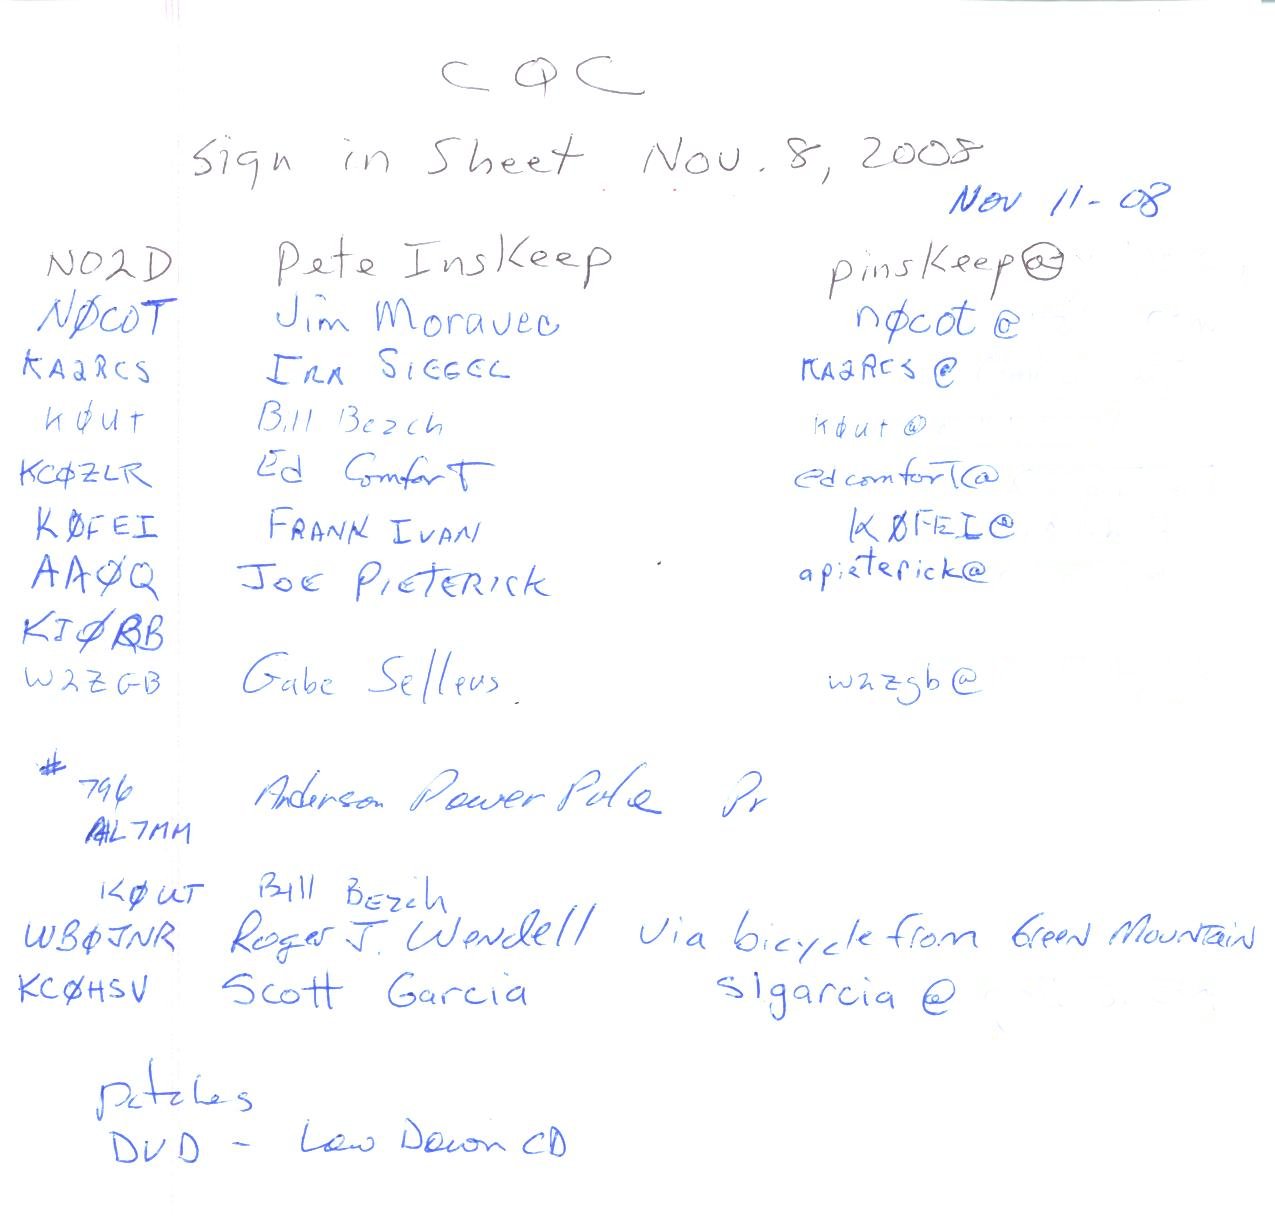 CQC
Sign in Sheet Nov. 8, 2008
Nov 11-08
NO2D Pete Inskeep pinskeep@
NØCOT Jim Moravec nøcot@
KA2RCS IRA SIEGEL KA2RCS@
KØUT Bill Bezch kØut@
KCØZLR Ed Comfort edcomfort@
KØFEI FRANK IVAN KØFEI@
AAØQ JOE PIETERICK apieterick@
KIØBB
W2ZGB Gabe Sellers w2zgb@
# 796 Anderson Power Pole Pr
AL7MM
KØUT Bill BEzch
WBØJNR Roger J. Wendell via bicycle from Green Mountain
KCØHSV Scott Garcia slgarcia@
patches
DVD - Low Down CD